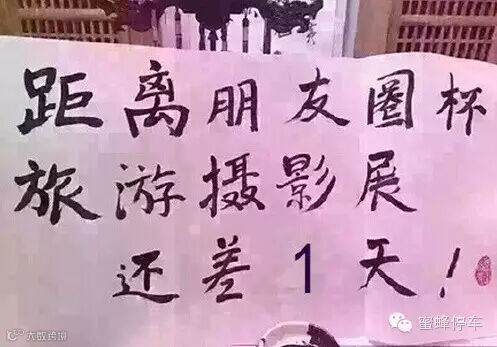 距离朋友圈杯
旅游摄影展
还差1天！
蜜蜂停车
大数跨境